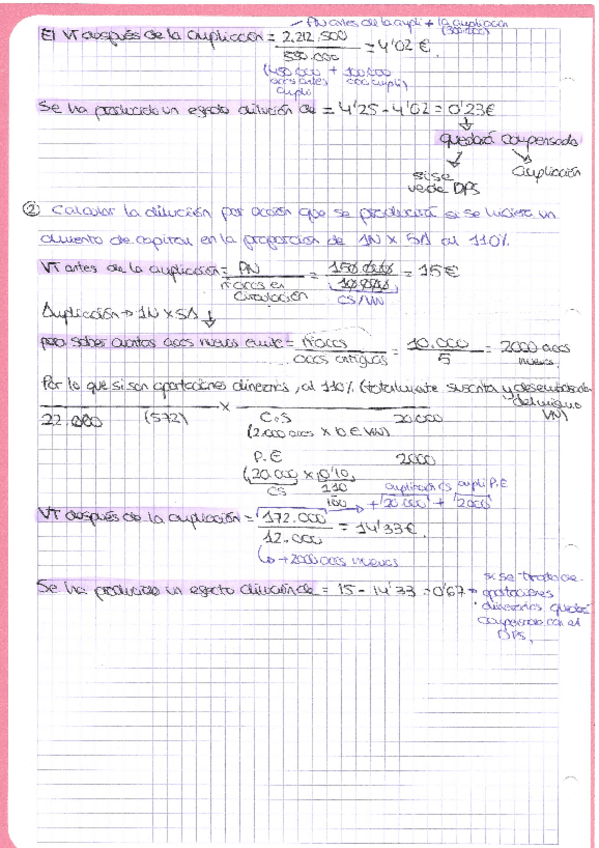 PN antes de la ampli + la ampliación
(300.000)
El VT después de la ampliación = 2.212.500 / 550.000 = 4'02 €.
(450.000 + 100.000
accs antes accs ampli)
ampli
Se ha producido un efecto dilución de = 4'25 - 4'02 = 0'23€
quedará compensada
si se ampliación
vende DPS
② Calcular la dilución por acción que se producirá si se hiciere un
aumento de capital en la proporción de 1N x 5A al 110%.
VT antes de la ampliación = PN / nº accs en circulación = 150.000 / 10.000 = 15€
CS/VN
Ampliación → 1N x 5A
para saber cuantas accs nuevas emite = nº accs / accs antiguas = 10.000 / 5 = 2000 accs
nuevas
Por lo que si son aportaciones dinerarias, al 110% (totalmente suscrita y desembolsada
VN)
22.000 (572) x C.S 20.000
(2.000 accs x 10 € VN)
P.E 2000
(20.000 x 0'10)
CS 110
100
ampliación CS ampli P.E
+ 20.000 + 2000
VT después de la ampliación = 172.000 / 12.000 = 14'33€
→ +2000 accs nuevas
Se ha producido un efecto dilución de = 15 - 14'33 = 0'67 →
si se trata de
aportaciones
dinerarias quedará
compensado con el
DPS.